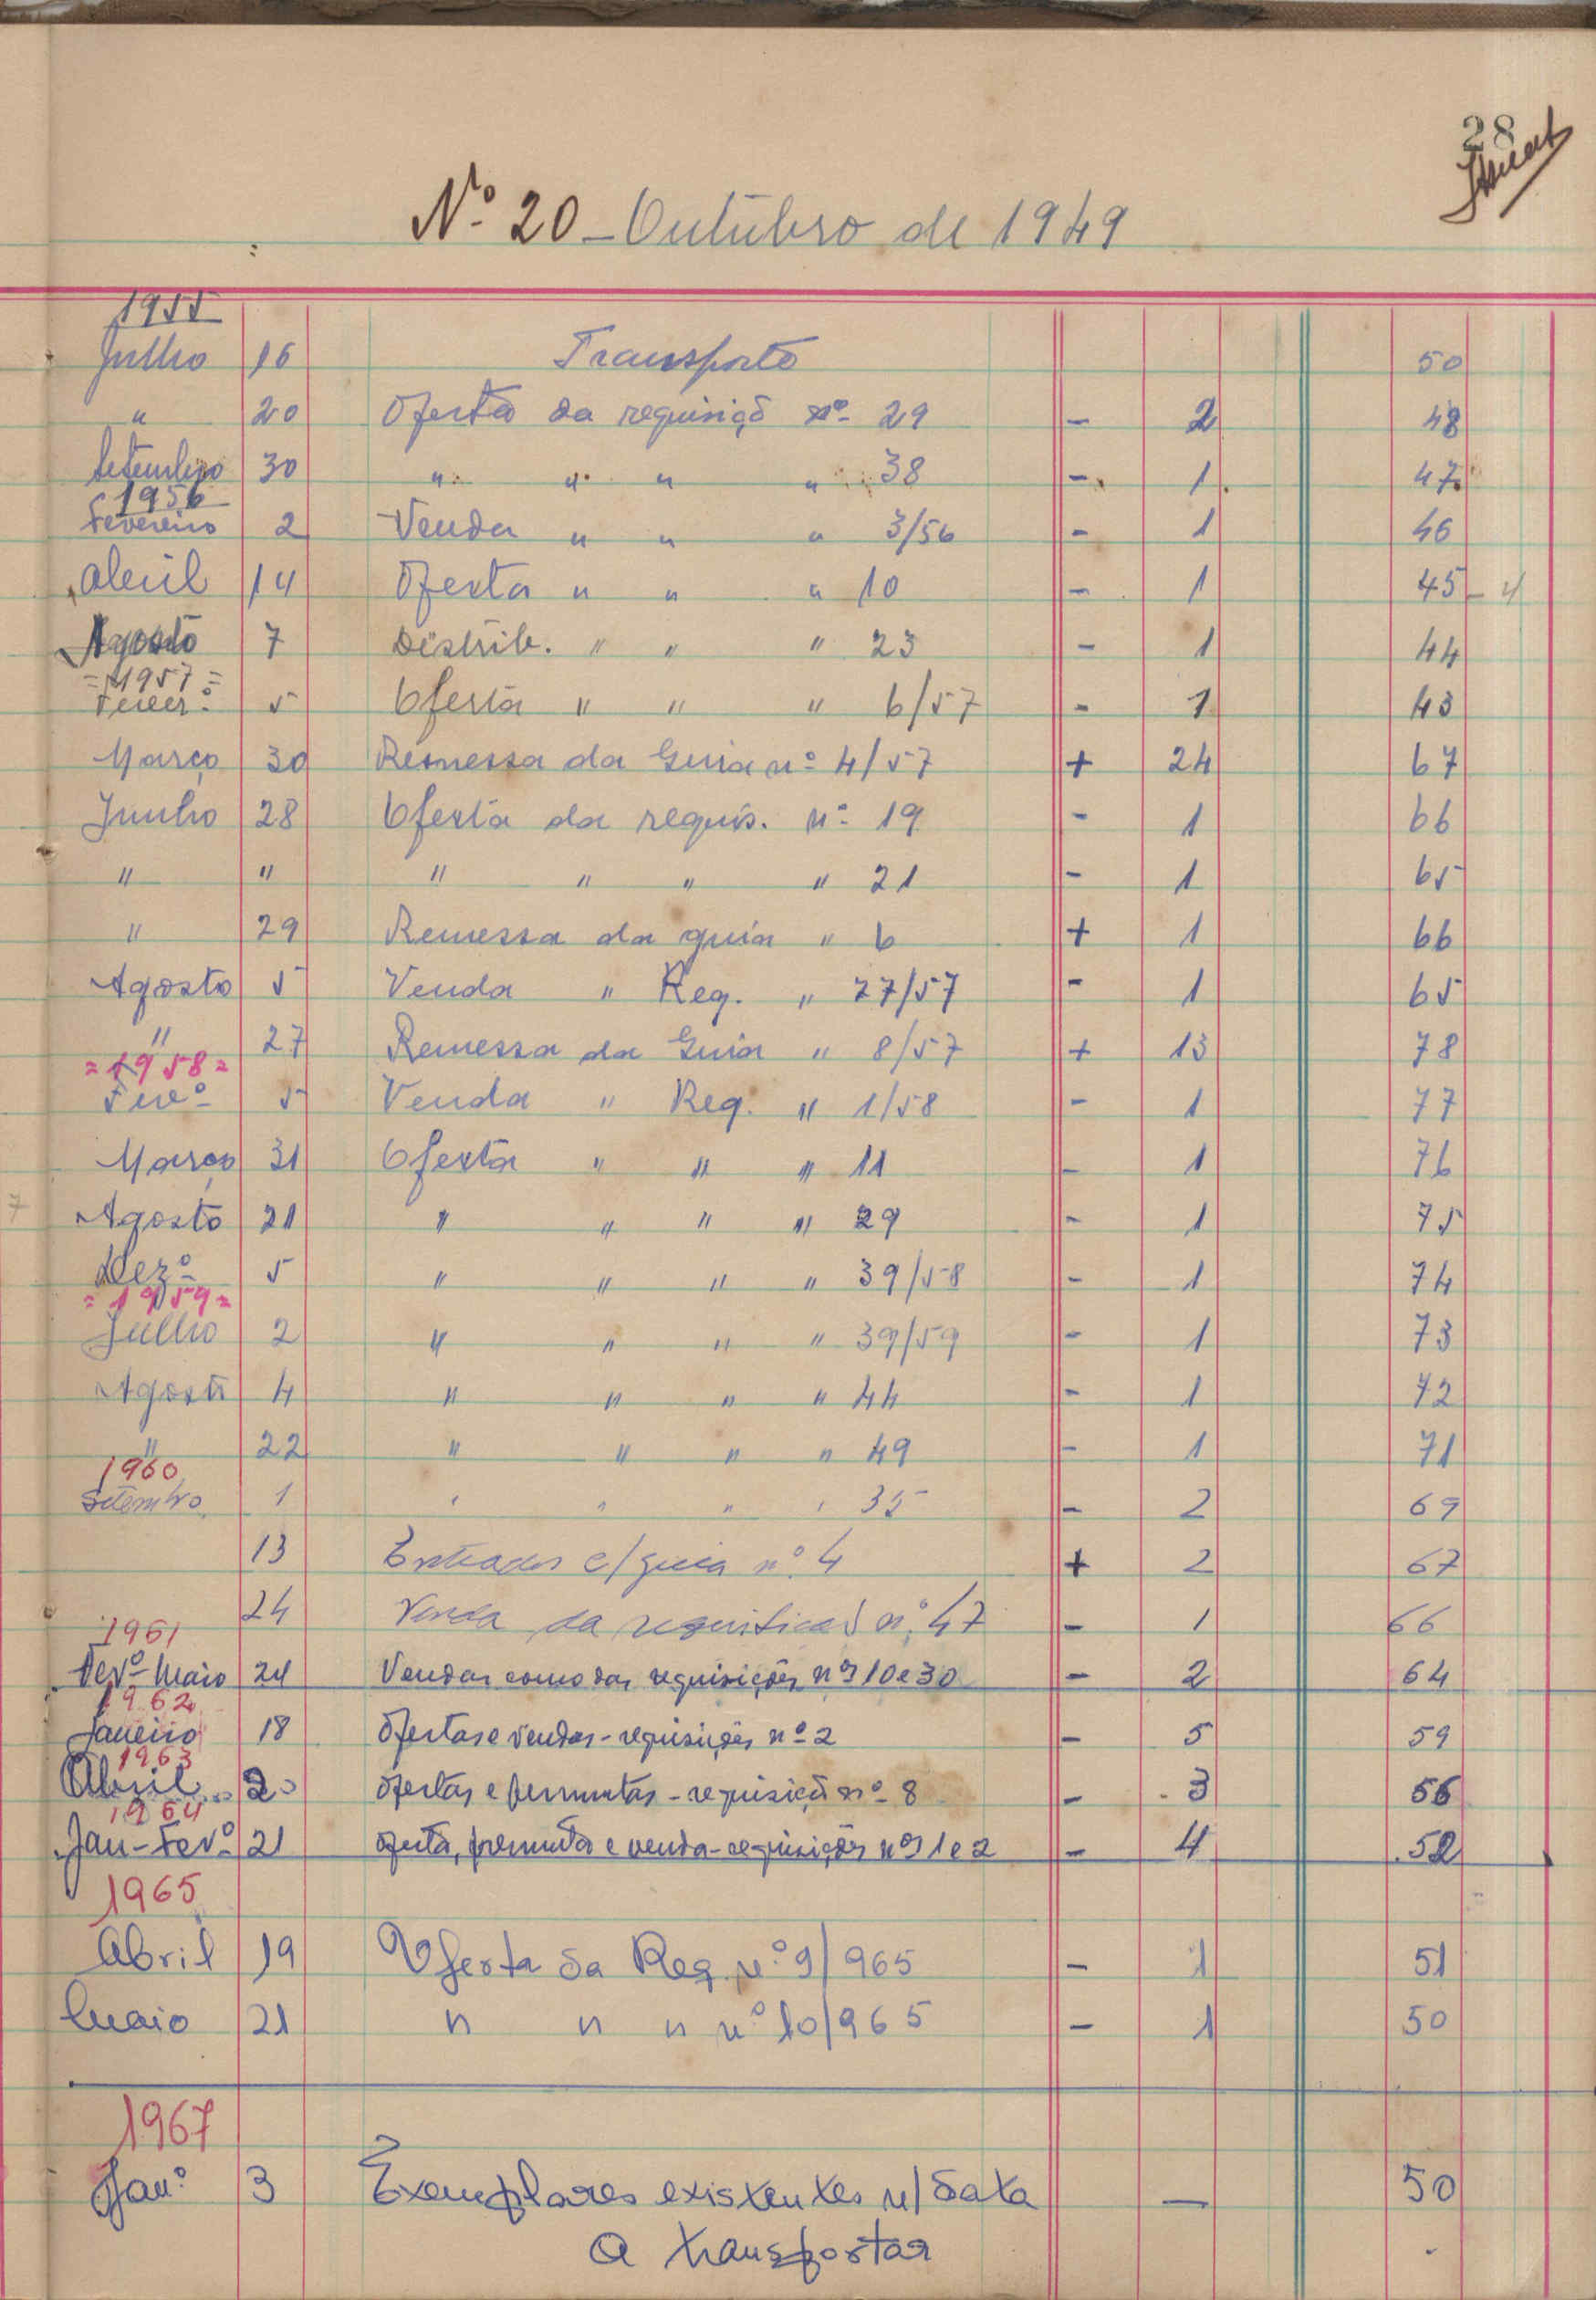 28
Nº 20 - Outubro de 1949
1955
Julho 16 Transporte 50
" 20 Oferta da requisiçõ nº 29 - 2 48
Setembro 30 " " " " 38 - 1 47
1956
Fevereiro 2 Venda " " " 3/56 - 1 46
Abril 14 Oferta " " " 10 - 1 45 - 4
Agosto 7 Distrib. " " " 23 - 1 44
= 1957 =
Fever.º 5 Oferta " " " 6/57 - 1 43
Março 30 Remessa da Guia nº 4/57 + 24 67
Junho 28 Oferta da requis. nº 19 - 1 66
" " " " " " 21 - 1 65
" 29 Remessa da guia " 6 + 1 66
Agosto 5 Venda " Req. " 27/57 - 1 65
" 27 Remessa da Guia " 8/57 + 13 78
= 1958 =
Fevº 5 Venda " Req. " 1/58 - 1 77
Março 31 Oferta " " " 11 - 1 76
7
Agosto 21 " " " " 29 - 1 75
Dezº 5 " " " " 39/58 - 1 74
= 1959 =
Julho 2 " " " " 39/59 - 1 73
Agosto 4 " " " " 44 - 1 72
" 22 " " " " 49 - 1 71
1960
Setembro 1 " " " " 35 - 2 69
13 Entradas c/guia nº 4 + 2 67
24 Venda da requisicaõ nº 47 - 1 66
1961
Fevº-Maio 24 Vendas como das requisições nºs 10 e 30 - 2 64
1962
Janeiro 18 Ofertas e vendas - requisições nº 2 - 5 59
1963
Abril 20 Ofertas e permutas - requisiçõ nº 8 - 3 56
1964
Jan-Fevº 21 oferta, premuta e venda - requisições nºs 1 e 2 - 4 52
1965
Abril 19 Oferta da Req. nº 9/965 - 1 51
Maio 21 " " " nº 10/965 - 1 50
1967
Janº 3 Exemplares existentes n/data — 50
a transportar